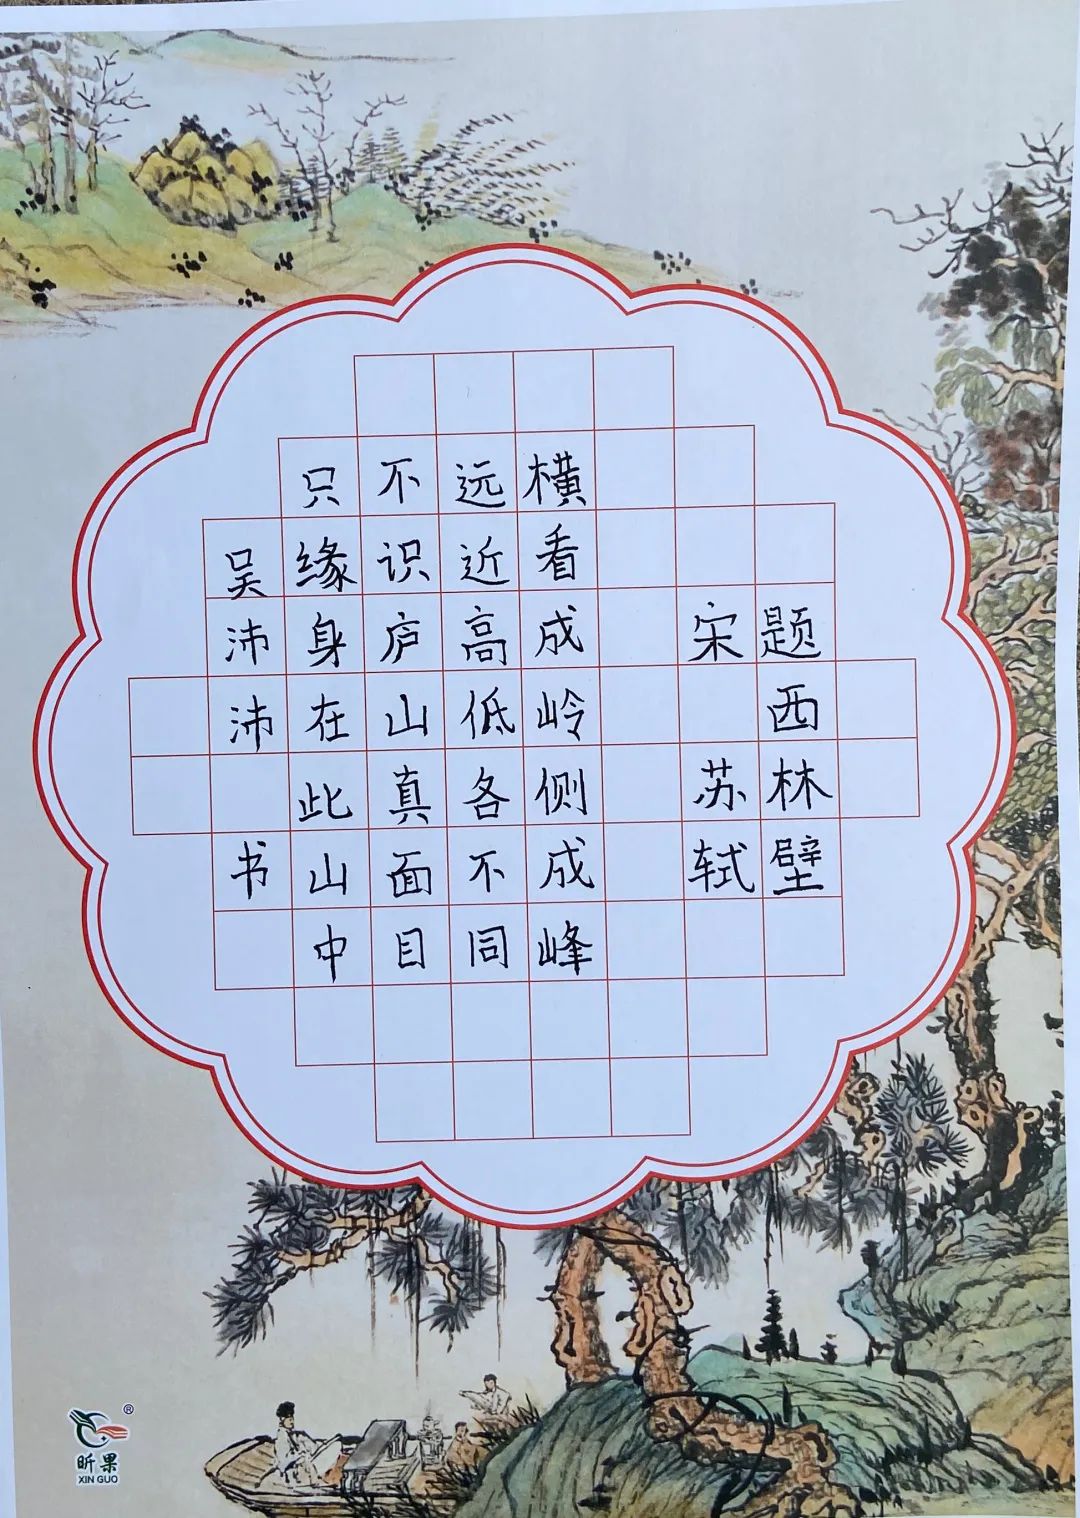 题西林壁
宋 苏轼
横看成岭侧成峰
远近高低各不同
不识庐山真面目
只缘身在此山中
吴沛沛 书
昕果®
XIN GUO